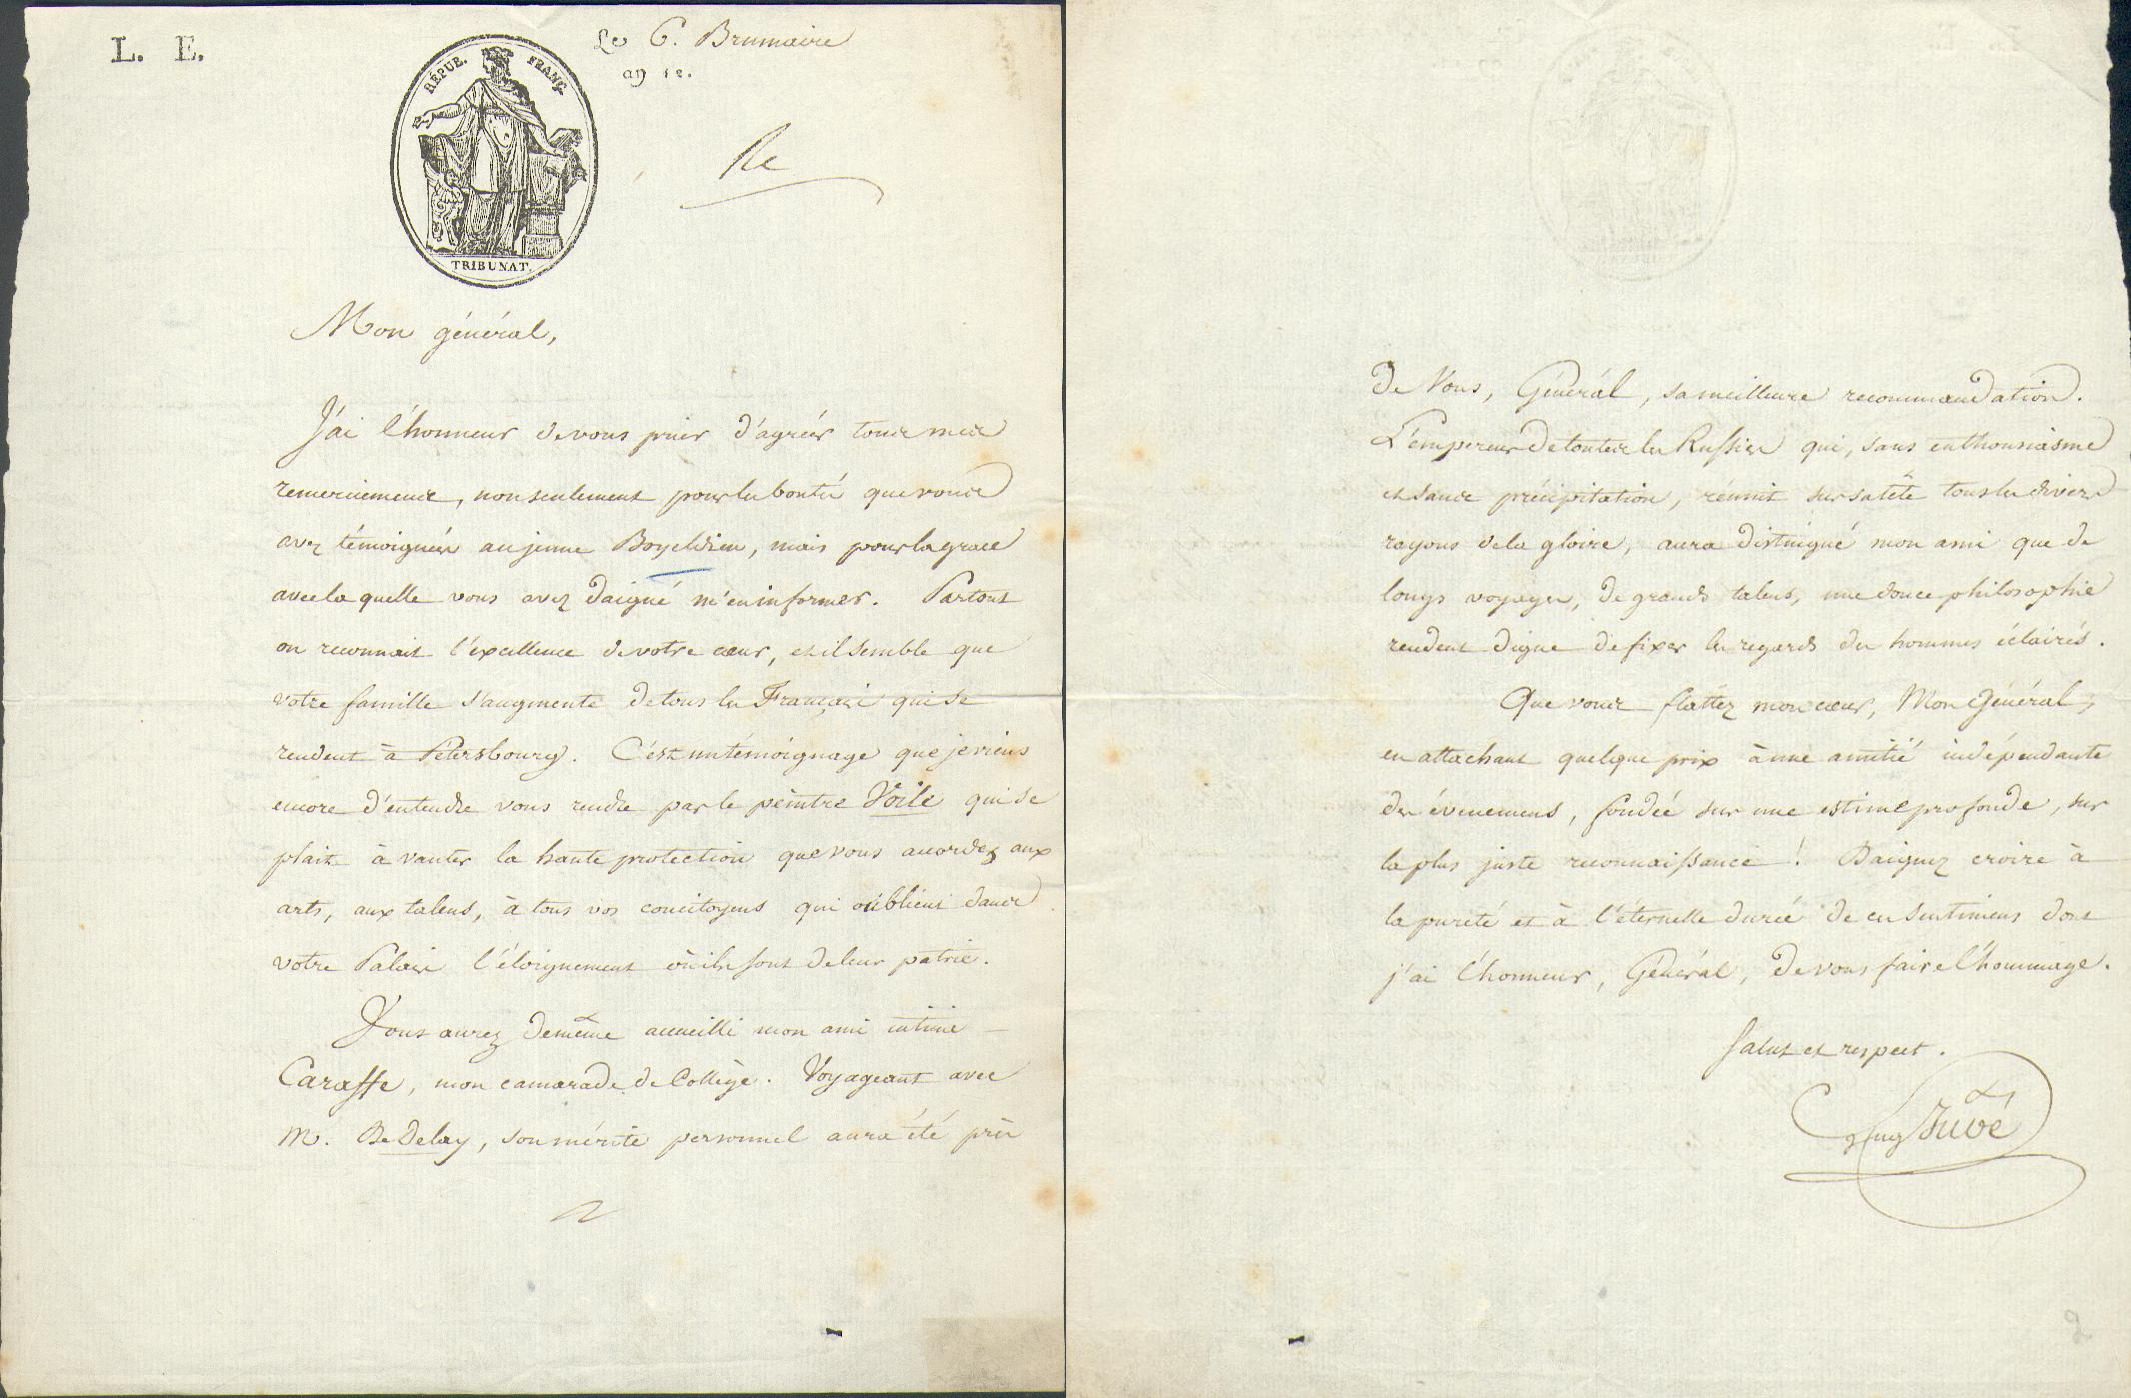 L. E.
Le 6. Brumaire
an 12.
RÉPUB. FRANÇ.
TRIBUNAT.
Re
Mon général,
J'ai l'honneur de vous prier d'agréér tous mes
remerciemens, non seulement pour les bontés que vous
avez témoignées au jeune Boyeldieu, mais pour la grace
avec la quelle vous avez daigné m'en informer. Partout
on reconnait l'excellence de votre cœur, et il semble que
votre famille s'augmente de tous les Français qui se
rendent à Pétersbourg. C'est un témoignage que je viens
encore d'entendre vous rendre par le peintre Voile qui se
plait à vanter la haute protection que vous accordez aux
arts, aux talens, à tous vos concitoyens qui oublient dans
votre Palais l'éloignement où ils sont de leur patrie.
Vous aurez demême accueilli mon ami intime
Caraffe, mon camarade de Collège. Voyageant avec
M. De Delay, son mérite personnel aura été près
De Vous, Général, sa meilleure recommandation.
L'empereur de toutes les Russies qui, sans enthousiasme
et sans précipitation, réunit sur sa tête tous les divers
rayons de la gloire, aura distingué mon ami que de
longs voyages, de grands talens, une douce philosophie
rendent digne de fixer les regards des hommes éclairés.
Que vous flattez mon cœur, Mon Général,
en attachant quelque prix à une amitié indépendante
des évenemens, fondée sur une estime profonde, sur
la plus juste reconnaissance ! Daignez croire à
la pureté et à l'éternelle durée de ces sentimens dont
j'ai l'honneur, Général, de vous faire l'hommage.
Salut et respect.